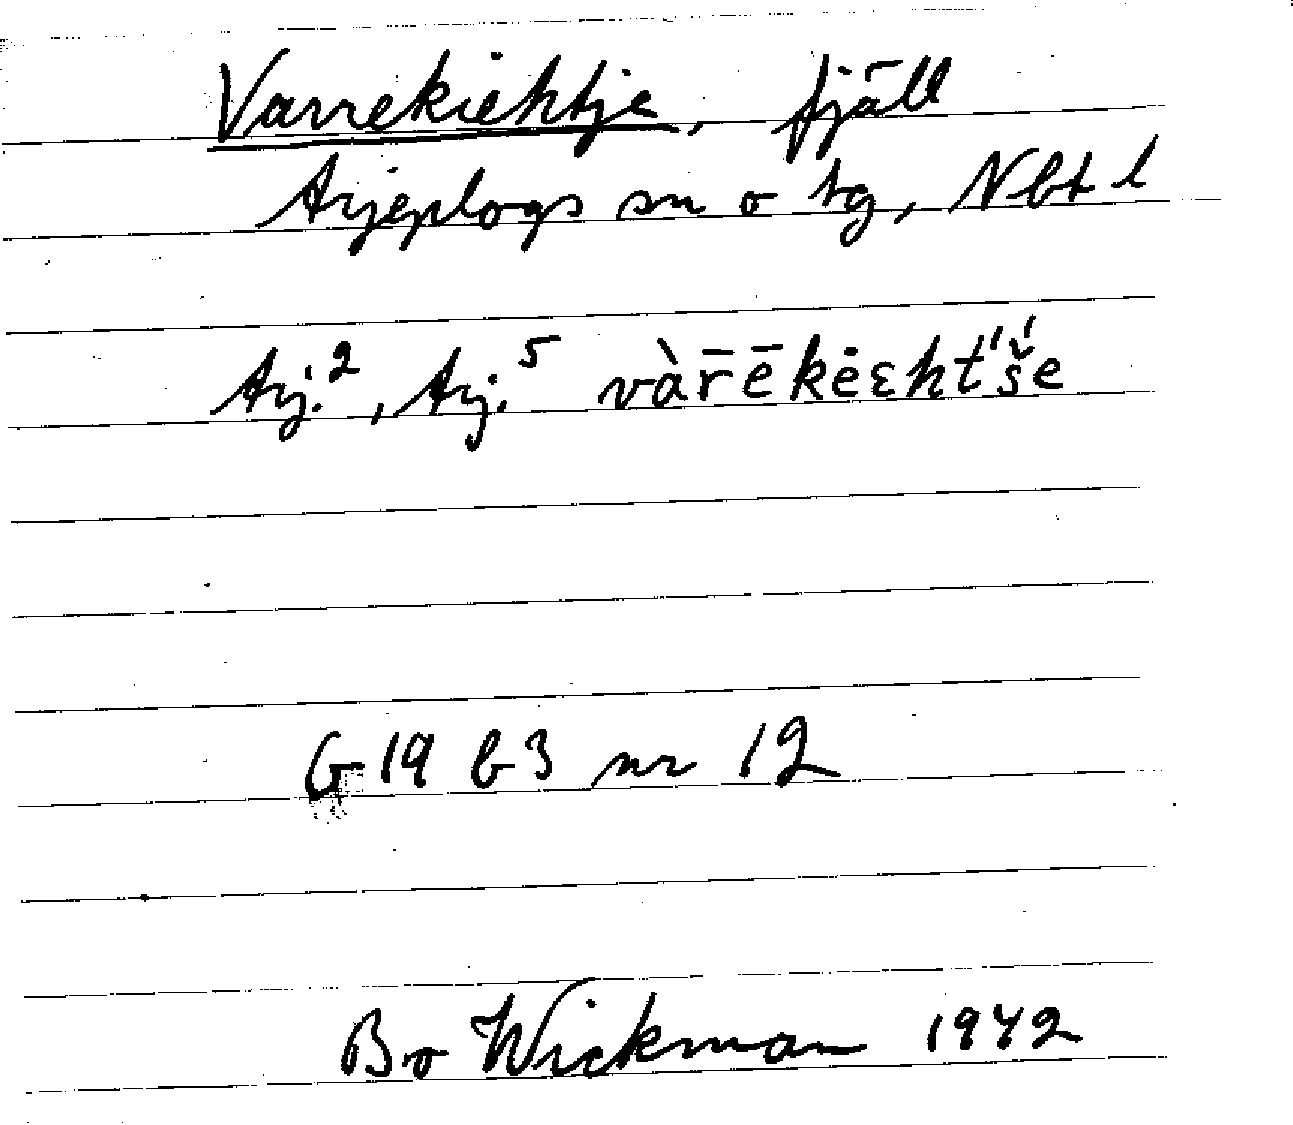 Varrekiehtje, fjäll
Arjeplogs sn o tg, Nbt l
Arj.², Arj.⁵ vàr̄ēkėεht́š́e
G19 b3 nr 12
Bo Wickman 1942